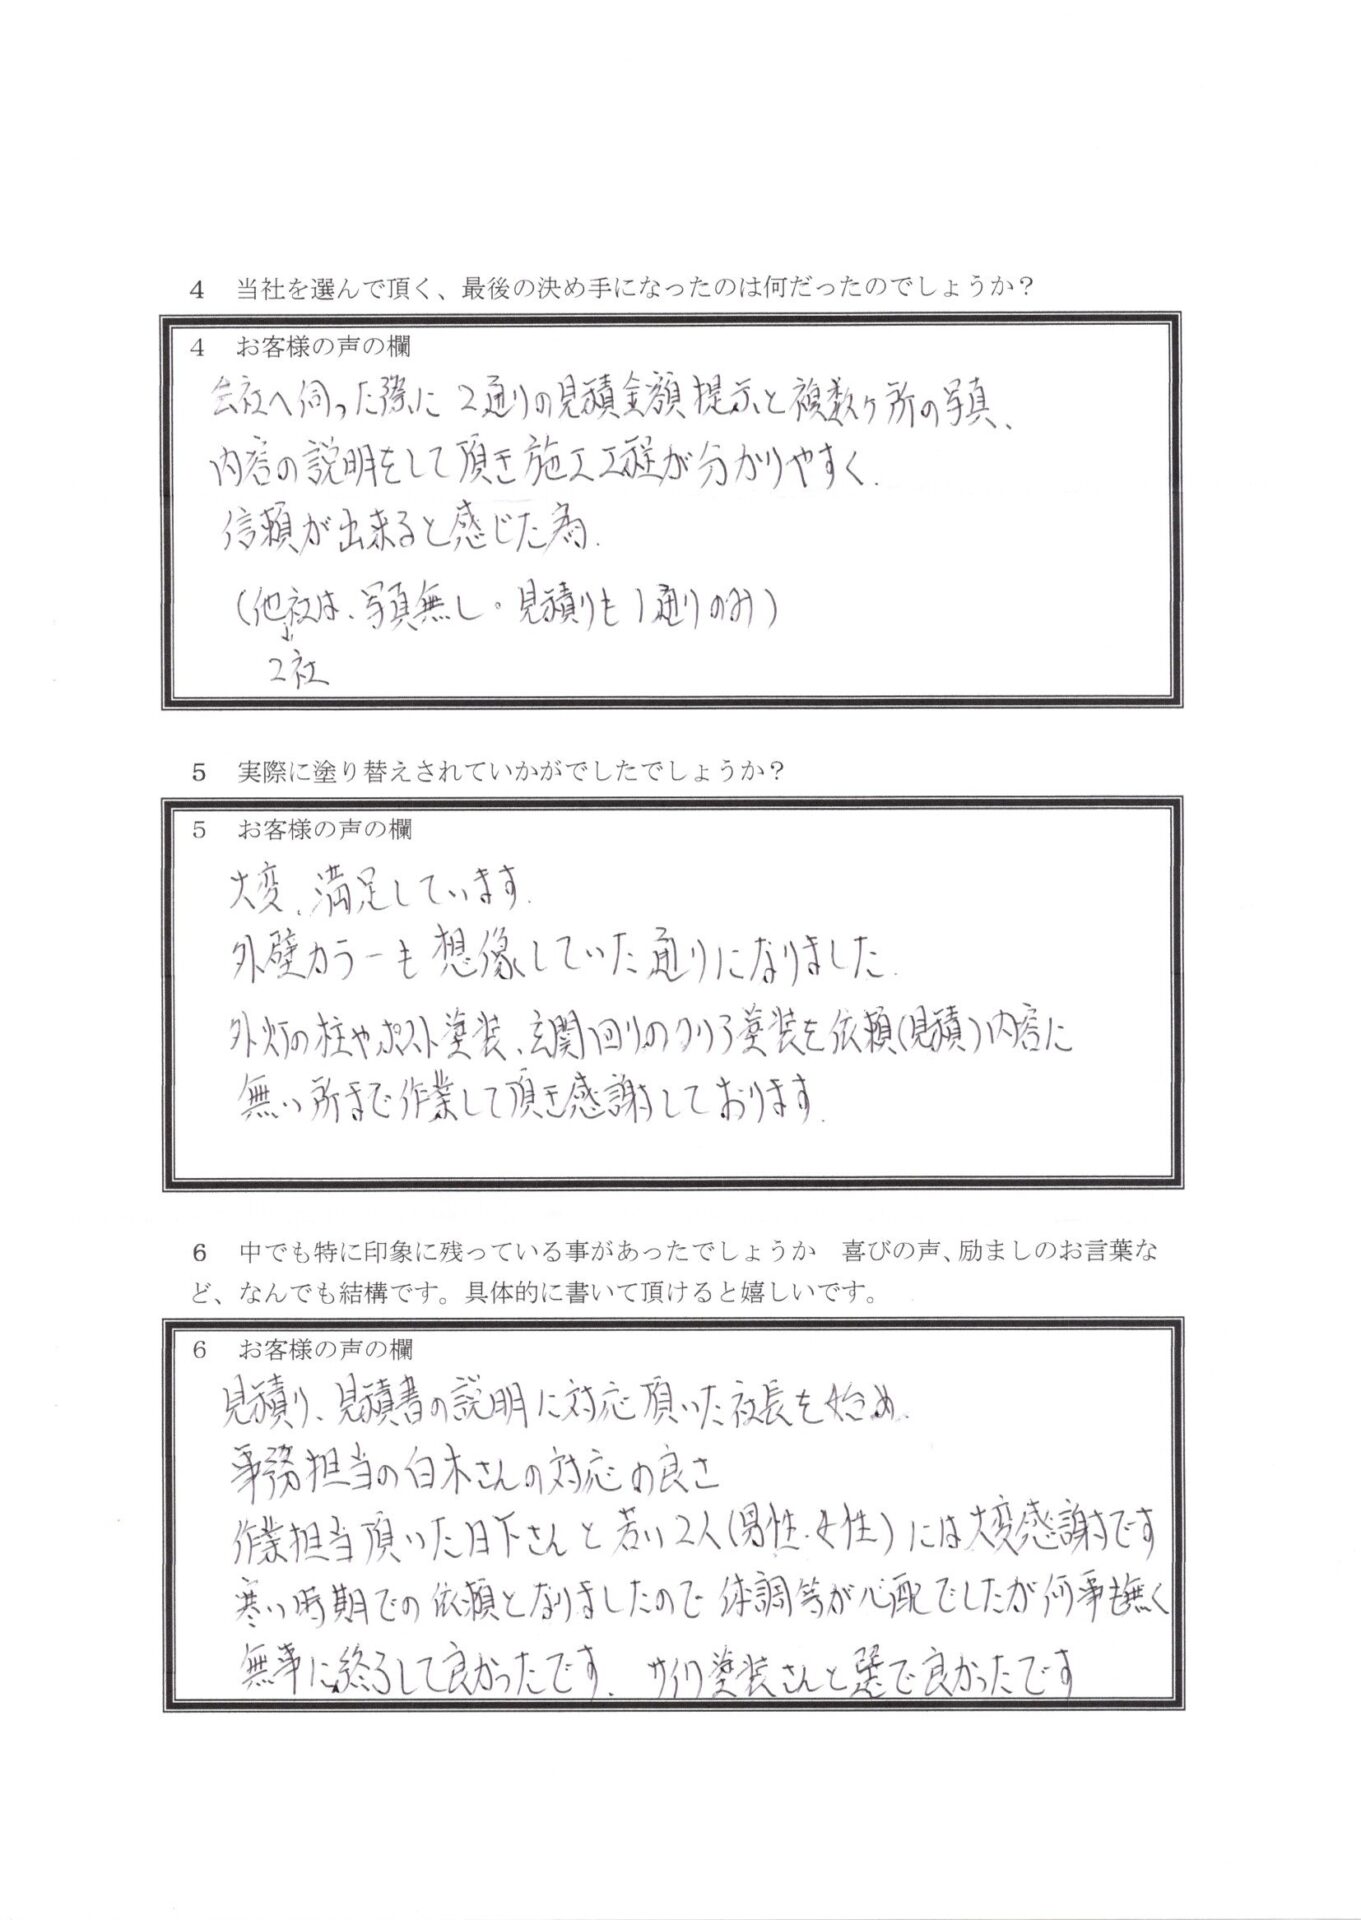 4 当社を選んで頂く、最後の決め手になったのは何だったのでしょうか？
4 お客様の声の欄
会社へ伺った際に 2通りの見積金額提示と複数ヶ所の写真、
内容の説明をして頂き施工工程が分かりやすく.
信頼が出来ると感じた為.
（他社は、写真無し。見積りも1通りのみ）
↓
2社
5 実際に塗り替えされていかがでしたでしょうか？
5 お客様の声の欄
大変、満足しています.
外壁カラーも想像していた通りになりました.
外灯の柱やポスト塗装、玄関回りのクリア塗装を依頼(見積)内容に
無い所まで作業して頂き感謝しております.
6 中でも特に印象に残っている事があったでしょうか 喜びの声、励ましのお言葉な
ど、なんでも結構です。具体的に書いて頂けると嬉しいです。
6 お客様の声の欄
見積り、見積書の説明に対応頂いた社長を始め、
事務担当の白木さんの対応の良さ
作業担当頂いた日下さんと若い2人(男性・女性)には大変感謝です
寒い時期での依頼となりましたので体調等が心配でしたが何事も無く
無事に終了して良かったです. サイワ塗装さんと選で良かったです